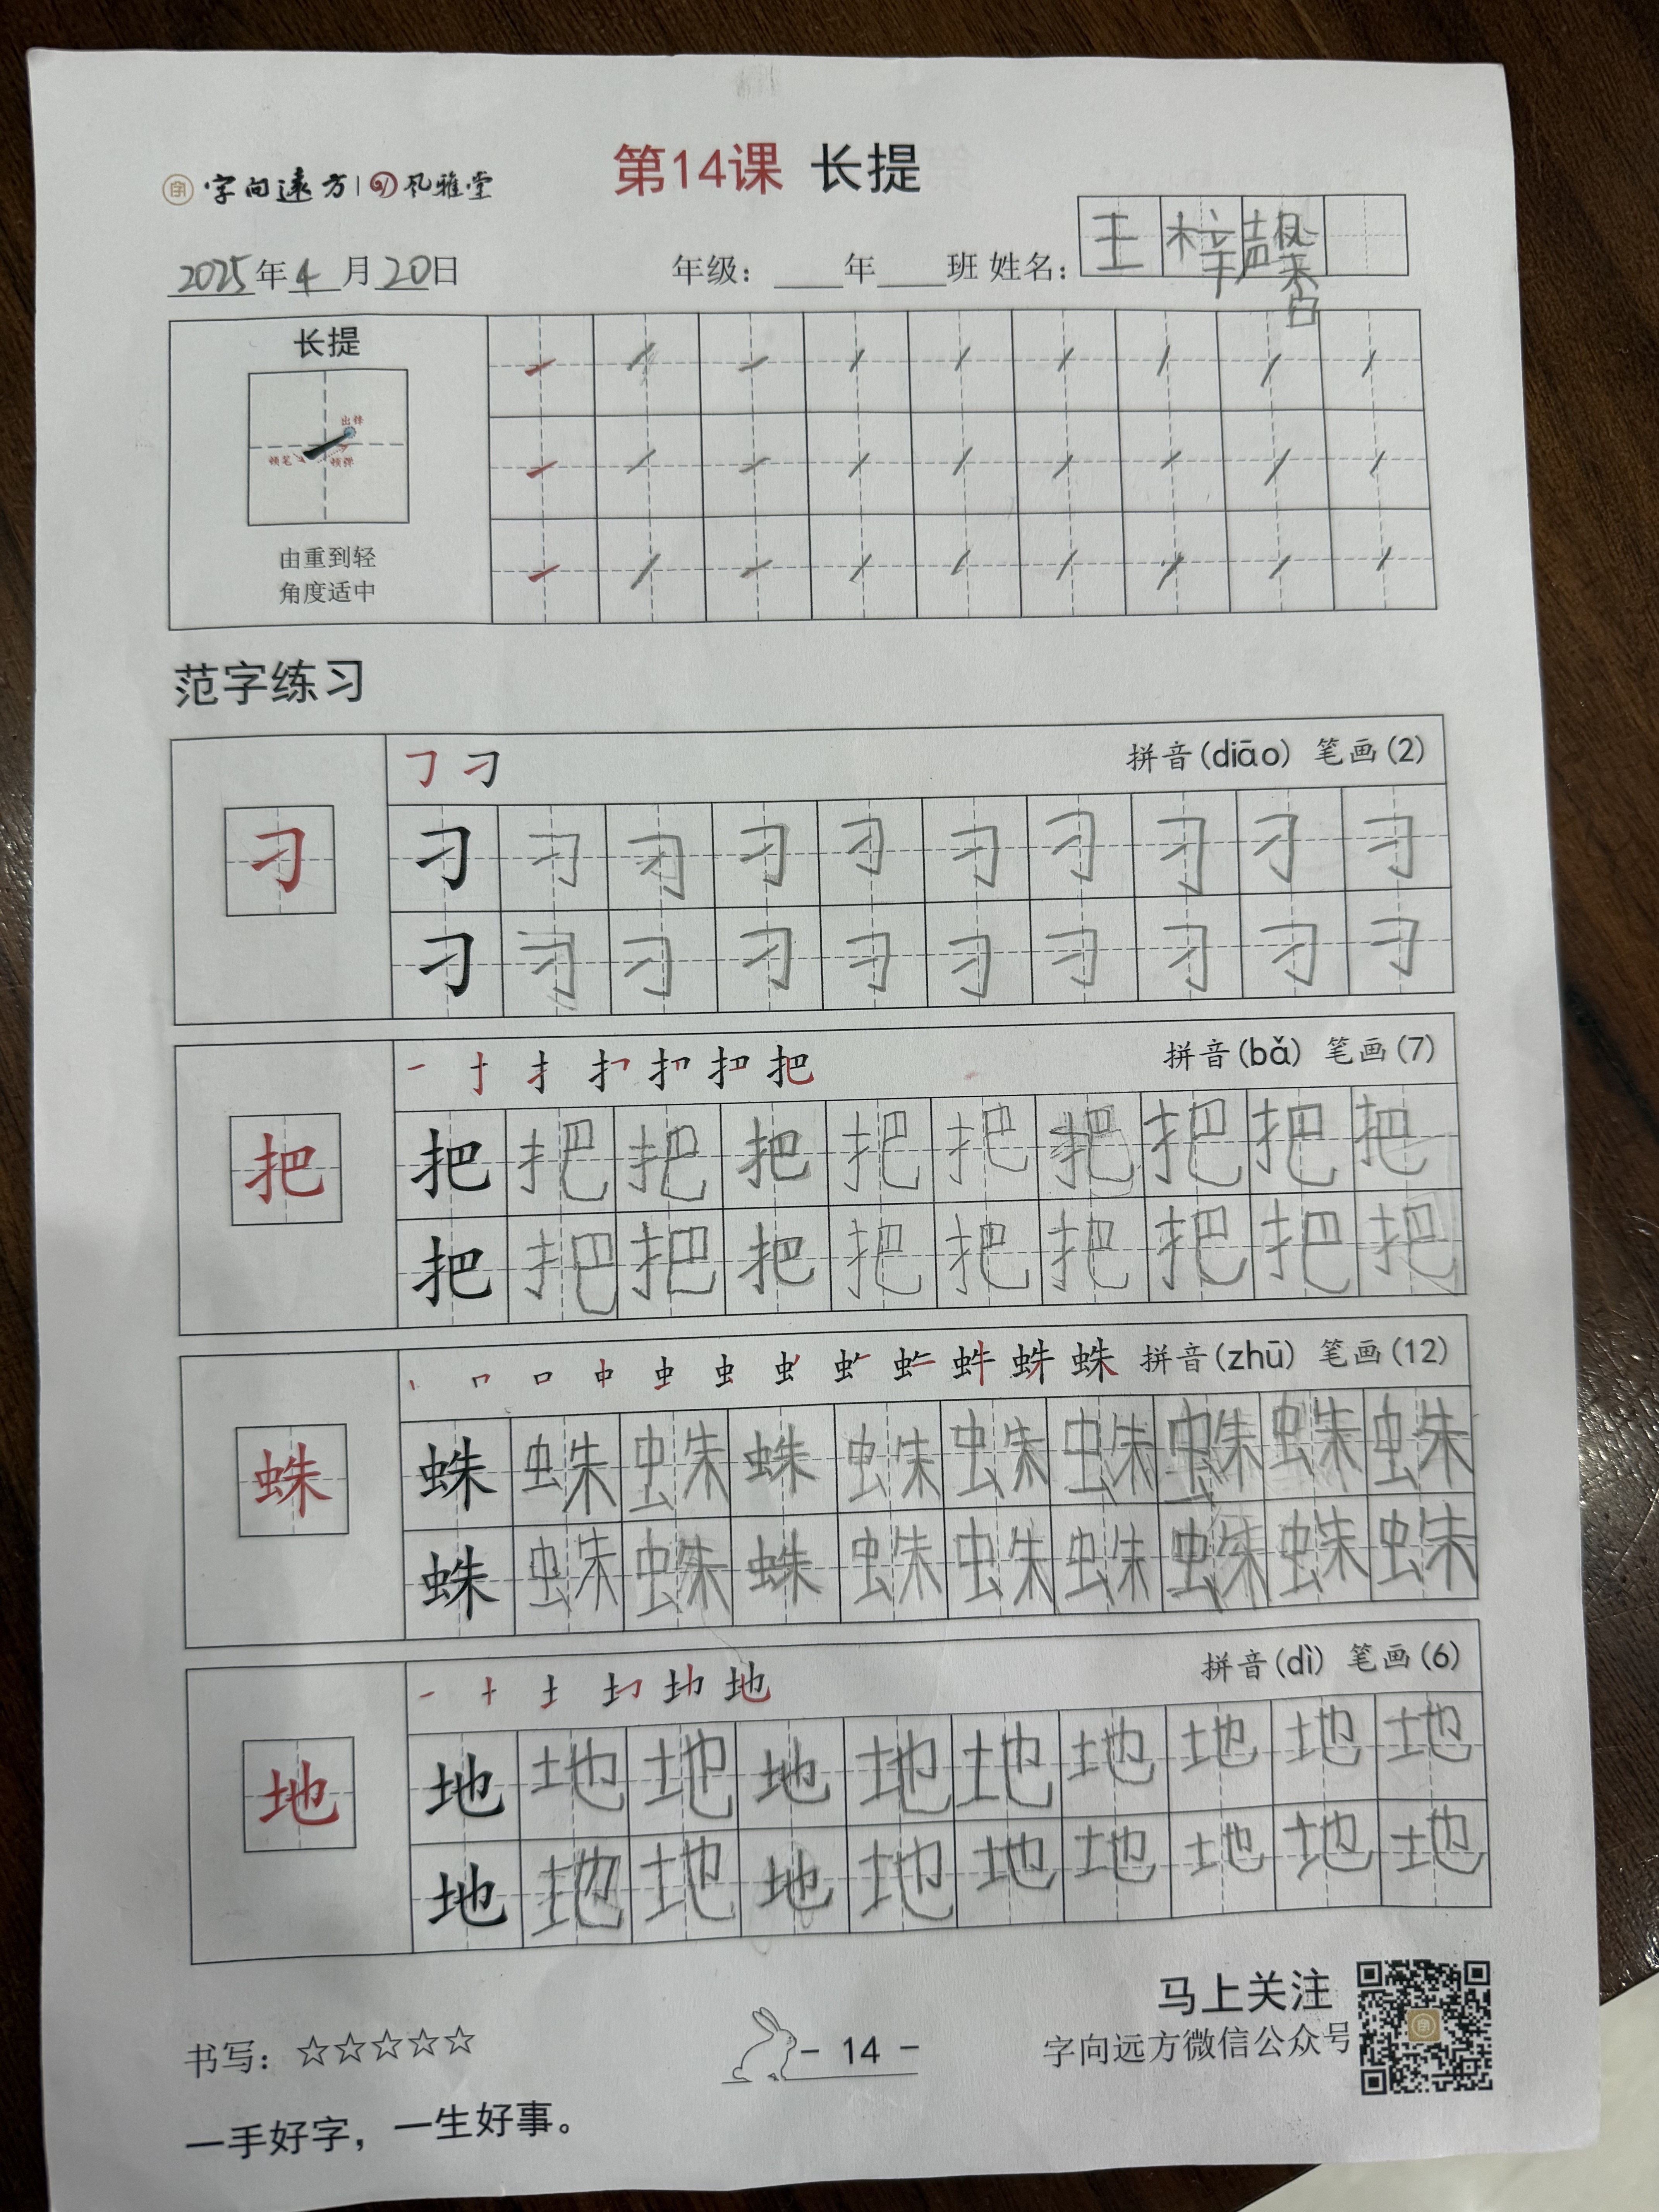 第14课 长提
字向遠方 | 风雅堂
2025年4月20日 年级：____年____班 姓名：王梓馨
长提
出锋
顿笔 倾弹
由重到轻
角度适中
范字练习
拼音(diāo) 笔画(2)
刁 刁 刁 刁 刁 刁 刁 刁 刁 刁 刁
刁 刁 刁 刁 刁 刁 刁 刁 刁 刁
拼音(bǎ) 笔画(7)
把 把 把 把 把 把 把 把 把 把 把
把 把 把 把 把 把 把 把 把 把
拼音(zhū) 笔画(12)
蛛 蛛 蛛 蛛 蛛 蛛 蛛 蛛 蛛 蛛 蛛
蛛 蛛 蛛 蛛 蛛 蛛 蛛 蛛 蛛 蛛
拼音(dì) 笔画(6)
地 地 地 地 地 地 地 地 地 地 地
地 地 地 地 地 地 地 地 地 地
马上关注
字向远方微信公众号
书写：☆☆☆☆☆
- 14 -
一手好字，一生好事。